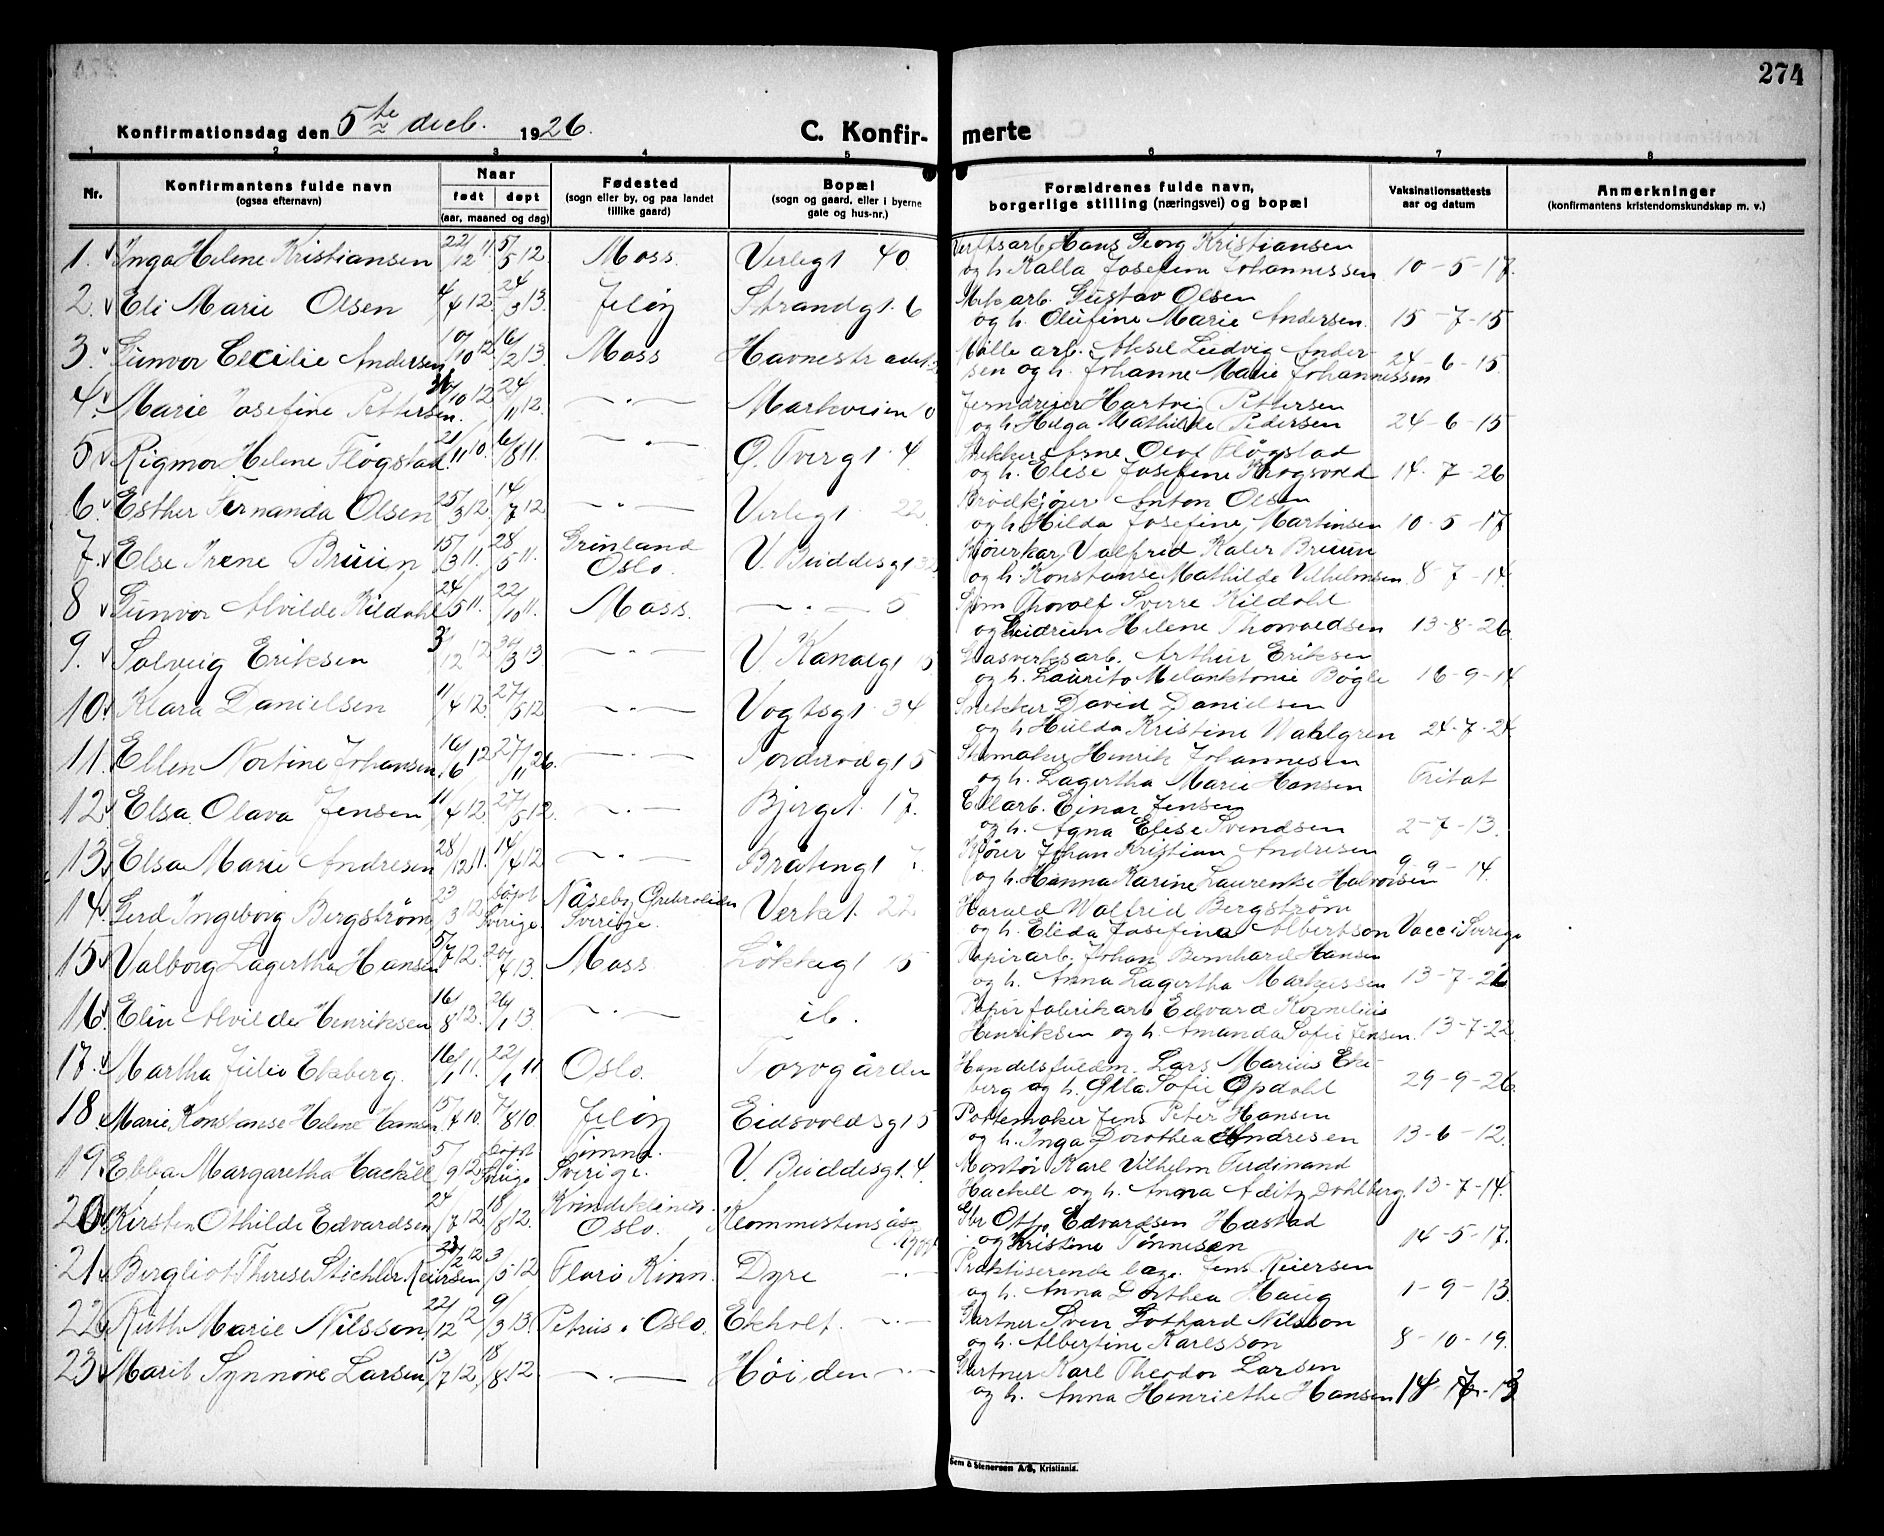 274
Konfirmationsdag den 5te decb. 1926.
C. Konfir- merte
1 2 3 4 5 6 7 8
Nr. Konfirmantens fulde navn (ogsaa efternavn) Naar født døpt (aar, maaned og dag) Fødested (sogn eller by, og paa landet tillike gaard) Bopæl (sogn og gaard, eller i byerne gate og hus-nr.) Forældrenes fulde navn, borgerlige stilling (næringsvei) og bopæl Vaksinationsattests aar og datum Anmerkninger (konfirmantens kristendomskundskap m. v.)
1. Inga Helene Kristiansen 22/12 11. 5/5 12 Moss. Verlegt 40 Verftsarb. Hans Georg Kristiansen
og h. Kalla Josefine Johannessen 10-5-17.
2. Eli Marie Olsen 4/4 12. 24/3 13. Jeløy Strandgt. 6 Mek arb. Gustav Olsen
og h. Olufine Marie Andersen. 15-7-15
3. Gunvor Cecilie Andersen 10/10 12. 16/2 13. Moss Mölle arb. Aksel Ludvig Ander-
sen og h. Johanne Marie Johannessen 24-6-15.
4. Marie Josefine Pettersen. /10 12 24/11 12. — " — Markveien Hartvig Pettersen
og h. Helga Mathilde Pedersen 24-6-15
5 Rigmor Helene Fløgstad 21/11 10. 6/8 11. — " — Ø. Tvergt. 4. Snekker Arne Olaf Fløgstad
og h. Elise Josefine Krogsvold 14-7-26
6. Esther Fernanda Olsen 25/3 12. 14/7 12 — " — Verlegt 22 Anton Olsen
og h. Hilda Josefine Martinsen 10-5-17
7. Else Irene Bruun 15/3 11. 28/5 11. Grünland
Oslo. V. Buddesgt Valfrid Bruun
og h. Konstanse Mathilde Vilhelmsen 8-7-14.
8 Gunvor Alvilde Kildahl 24/5 11. 22/10 11. Moss. — " — 5 Thorolf Sverre Kildahl
og Helene Thorvaldsen 13-8-26
9. Solveig Eriksen 3/12 12 /3 13 — " — V. Kanalgt 15 Glasverksarb. Arthur Eriksen
og h. Melanktonie Bøgle 16-9-14
10. Klara Danielsen 11/4 12. 27/5 12 — " — Vogtsgt. 34 Snekker David Danielsen
og h. Hulda Kristine Wahlgren 24-7-24
11. Ellen Nortine Johansen 16/6 12 27/11 26. — " — 5 Henrik Johannesen
og h. Lagertha Marie Hansen Fritat
12. Elsa Olava Jensen 11/4 12. 27/5 12. — " — Bjergt. 17. Einar Jensen
og h. Agna Elise Svendsen 2-7-13.
13. Elsa Marie Andresen 28/12 11. 14/4 12 — " — Bråtengt 7. Kjører Johan Kristian Andresen
og h. Hanna Karine Laurense Halvorsen 9-9-14.
14. Gerd Ingeborg Bergström 23/3 12 döpt Sverige. Sverige. Verket 22 Harald Walfrid Bergström
og h. Elida Josefina Albertson Vacc i Sverige
15 Valborg Lagertha Hansen 5/7 12. 20/4 13. Moss. Løkkegt 15 Papirarb. Johan Bernhard Hansen
og h. Anna Lagertha Markussen 13-7-26
16. Elin Alvilde Henriksen 16/8 12. 26/1 13. — " — ib. Papirfabrikarb Edvard Kornelius
Henriksen og h. Amanda Sofie Jensen. 13-7-22
17. Martha Julie Ekberg. 16/1 11. 22/1 11 Oslo. Torvgården Handelsfuldm. Lars Marius Ek-
berg og h. Sofie Opdahl 29-9-26
18 Marie Konstanse Helene Hansen. 15/4 10. 7/8 10. Jeløy Eidsvoldsgt 5 Pottemaker Jens Peter Hansen
og h. Inga Dorothea Andresen 13-6-12.
19. Ebba Margaretha Hackzell 5/9 12 döpt Sverige. V. Buddesgt. 4. Montør Karl Vilhelm Ferdinand
og h. Anna Dahlberg. 13-7-14.
20. Kirsten Othilde Edvardsen 24/7 12. 18/8 12. Kvindeklinik
Oslo. Otto Edvardsen Hastad
og Kristine Tønnesen 14-5-17.
21. Bergliot Therese Stichler Reiersen /2 12 3/5 12 Florø Kinn. Dyre — " — Praktiserende læge Jens Reiersen
og h. Anna Dorthea Haug 1-9-13.
22. Ruth Marie Nilsson. 22/12 12 9/3 13. Petrus. Oslo. Ekholt. — " — Gartner Sven Gothard Nilsson
og h. Albertine Karlsson 8-10-19.
23. Marit Synnøve Larsen 13/7 12, 18/8 12 — " — Høiden — " — Gartner Karl Theodor Larsen
og h. Anna Henriethe Hansen
Sem & Stenersen A/S, Kristiania.